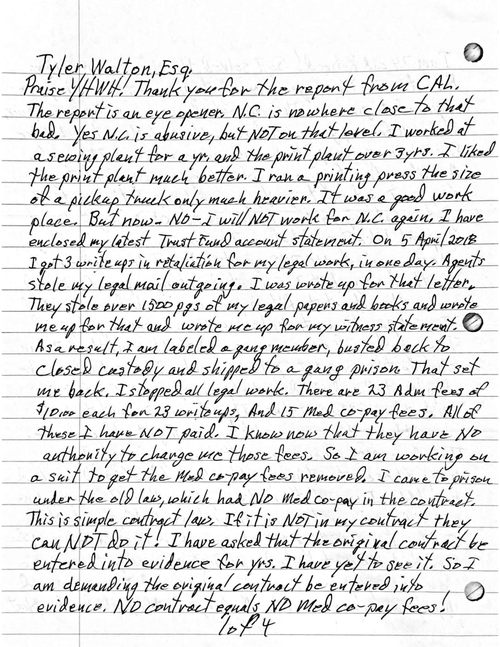 Tyler Walton, Esq.
Praise YHWH! Thank you for the report from CAL.
The report is an eye opener. N.C. is nowhere close to that
bad. Yes N.C. is abusive, but NOT on that level. I worked at
a sewing plant for a yr. and the print plant over 3 yrs. I liked
the print plant much better. I ran a printing press the size
of a pickup truck only much heavier. It was a good work
place. But now - NO - I will NOT work for N.C. again. I have
enclosed my latest Trust Fund account statement. On 5 April 2018
I got 3 write ups in retaliation for my legal work, in one day. Agents
stole my legal mail outgoing. I was wrote up for that letter.
They stole over 1500 pgs of my legal papers and books and wrote
me up for that and wrote me up for my witness statement.
As a result, I am labeled a gang member, busted back to
closed custody and shipped to a gang prison. That set
me back. I stopped all legal work. There are 23 Adm fees of
$10.00 each for 23 write ups, And 15 Med co-pay fees. All of
these I have NOT paid. I know now that they have NO
authority to charge me those fees. So I am working on
a suit to get the Med co-pay fees removed. I came to prison
under the old law, which had NO Med co-pay in the contract.
This is simple contract law. If it is NOT in my contract they
can NOT do it! I have asked that the original contract be
entered into evidence for yrs. I have yet to see it. So I
am demanding the original contract be entered into
evidence. NO contract equals NO Med co-pay fees!
1 of 4